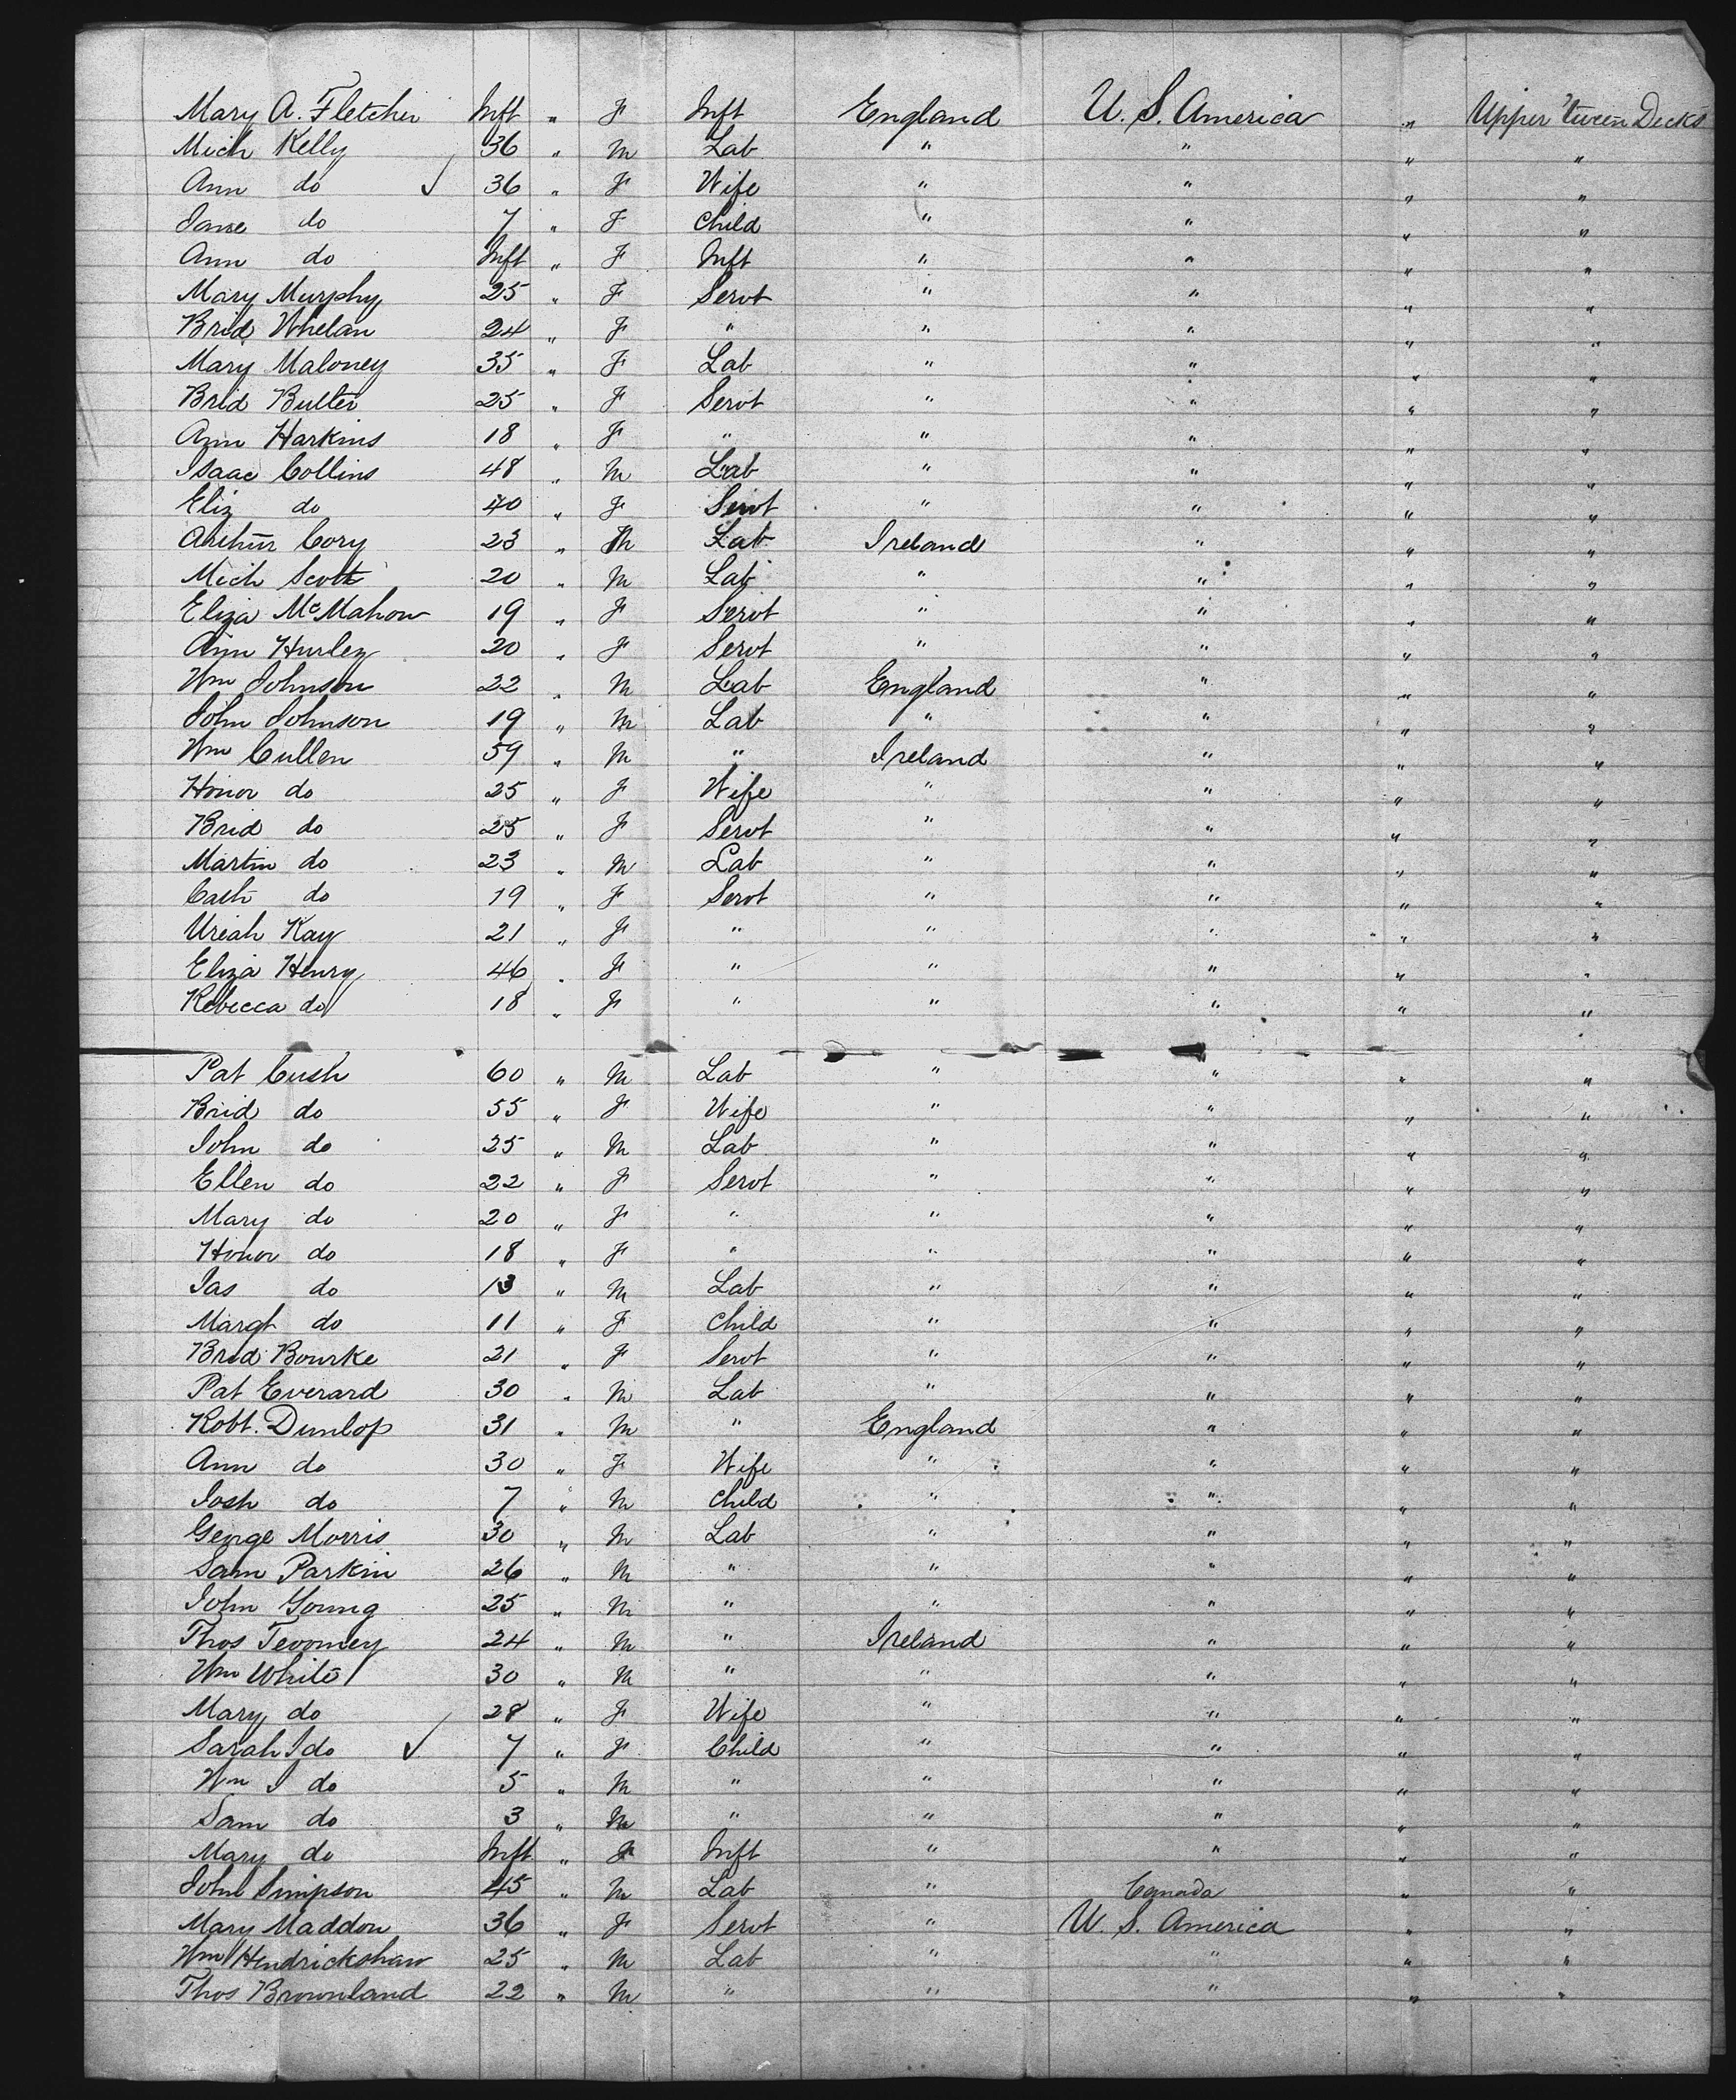 Mary A. Fletcher Inft " F Inft England U. S. America " Upper 'tween Decks
Mich Kelly 36 " M Lab " " " "
Ann do 36 " F Wife " " " "
Jane do 7 " F Child " " " "
Ann do Inft " F Inft " " " "
Mary Murphy 25 " F Servt " " " "
Brid Whelan 24 " F " " " " "
Mary Maloney 35 " F Lab " " " "
Brid Butler 25 " F Servt " " " "
Ann Harkins 18 " F " " " " "
Isaac Collins 48 " M Lab " " " "
Eliz do 40 " F Servt " " " "
Arthur Cory 23 " M Lab Ireland " " "
Mich Scott 20 " M Lab " " " "
Eliza McMahon 19 " F Servt " " " "
Ann Hurley 20 " F Servt " " " "
Wm Johnson 22 " M Lab England " " "
John Johnson 19 " M Lab " " " "
Wm Cullen 59 " M " Ireland " " "
Honor do 25 " F Wife " " " "
Brid do 25 " F Servt " " " "
Martin do 23 " M Lab " " " "
Cath do 19 " F Servt " " " "
Uriah Kay 21 " F " " " " "
Eliza Henry 46 " F " " " " "
Rebecca do 18 " F " " " " "
Pat Cush 60 " M Lab " " " "
Brid do 55 " F Wife " " " "
John do 25 " M Lab " " " "
Ellen do 22 " F Servt " " " "
Mary do 20 " F " " " " "
Honor do 18 " F " " " " "
Jas do 13 " M Lab " " " "
Margt do 11 " F Child " " " "
Brid Bourke 21 " F Servt " " " "
Pat Everard 30 " M Lab " " " "
Robt. Dunlop 31 " M " England " " "
Ann do 30 " F Wife " " " "
Josh do 7 " M Child " " " "
George Morris 30 " M Lab " " " "
Sam Parkin 26 " M " " " " "
John Young 25 " M " " " " "
Thos Tevomey 24 " M " Ireland " " "
Wm White 30 " M " " " " "
Mary do 28 " F Wife " " " "
Sarah J do 7 " F Child " " " "
Wm J do 5 " M " " " " "
Sam do 3 " M " " " " "
Mary do Inft " F Inft " " " "
John Simpson 45 " M Lab " Canada " "
Mary Maddon 36 " F Servt " U. S. America " "
Wm Hendrickshaw 25 " M Lab " " " "
Thos Brownland 22 " M " " " " "